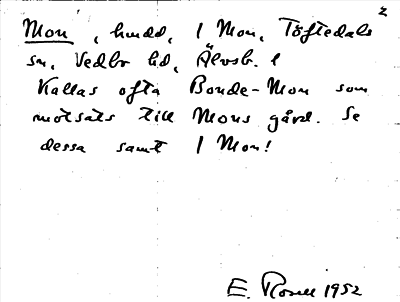 2
Mon, hmdd, 1 Mon, Töftedals
sn, Vedbo hd, Älvsb. l
Kallas ofta Bonde-Mon som
motsats till Mons gård. Se
dessa samt 1 Mon!
E. Rosell 1952